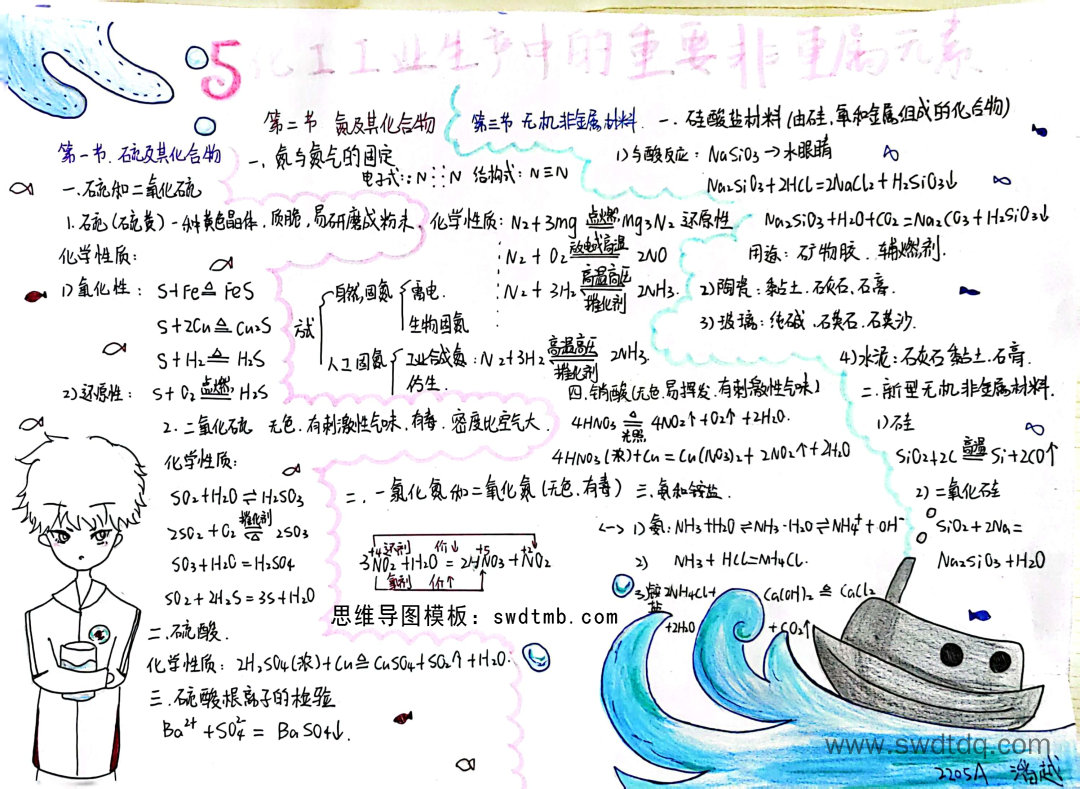 5 化工工业生产中的重要非重属元素
第一节.硫及其化合物
一.硫和二氧化硫
1.硫(硫黄)一种黄色晶体.质脆,易研磨成粉末.
化学性质:
1)氧化性: S+Fe≜FeS
S+2Cu≜Cu2S
S+H2≜H2S
2)还原性: S+O2 点燃 H2S
2.二氧化硫 无色.有刺激性气味,有毒.密度比空气大.
化学性质:
SO2+H2O⇌H2SO3
2SO2+O2 催化剂 △ 2SO3
SO3+H2O=H2SO4
SO2+2H2S=3S+H2O
二.硫酸.
化学性质: 2H2SO4(浓)+Cu≜CuSO4+SO2↑+H2O.
三.硫酸根离子的检验
Ba²⁺+SO4²⁻=BaSO4↓.
第二节 氮及其化合物
一.氮与氮气的固定
电子式: N⋮⋮N 结构式: N≡N
化学性质: N2+3mg 点燃 Mg3N2 还原性
N2+O2 放电或高温 2NO
N2+3H2 高温高压 催化剂 2NH3.
方式
自然固氮
雷电.
生物固氮
人工固氮
工业合成氨: N2+3H2 高温高压 催化剂 2NH3.
仿生.
二.一氧化氮和二氧化氮(无色.有毒)
+4还剂 价↓ +5 +2
3NO2+H2O=2HNO3+NO2
氧剂 价↑
三.氨和铵盐.
<一> 1)氨: NH3+H2O⇌NH3·H2O⇌NH4⁺+OH⁻
2) NH3+HCl=NH4Cl.
3)铵盐 2NH4Cl+Ca(OH)2≜CaCl2
+2H2O +CO2↑
四.硝酸(无色.易挥发.有刺激性气味)
4HNO3 △ 光照 4NO2↑+O2↑+2H2O.
4HNO3(浓)+Cu=Cu(NO3)2+2NO2↑+2H2O
第三节 无机非金属材料.
一.硅酸盐材料(由硅,氧和金属组成的化合物)
1)与酸反应: NaSiO3→水眼睛
Na2SiO3+2HCl=2NaCl2+H2SiO3↓
Na2SiO3+H2O+CO2=Na2CO3+H2SiO3↓
用途: 矿物胶.辅燃剂.
2)陶瓷: 黏土.石灰石.石膏.
3)玻璃: 纯碱.石英石.石英沙.
4)水泥: 石灰石 黏土.石膏.
二.新型无机非金属材料.
1)硅
SiO2+2C 高温 Si+2CO↑
2)二氧化硅
SiO2+2Na=
Na2SiO3+H2O
思维导图模板：swdtmb.com
www.swdtdq.com
2205A 潘越